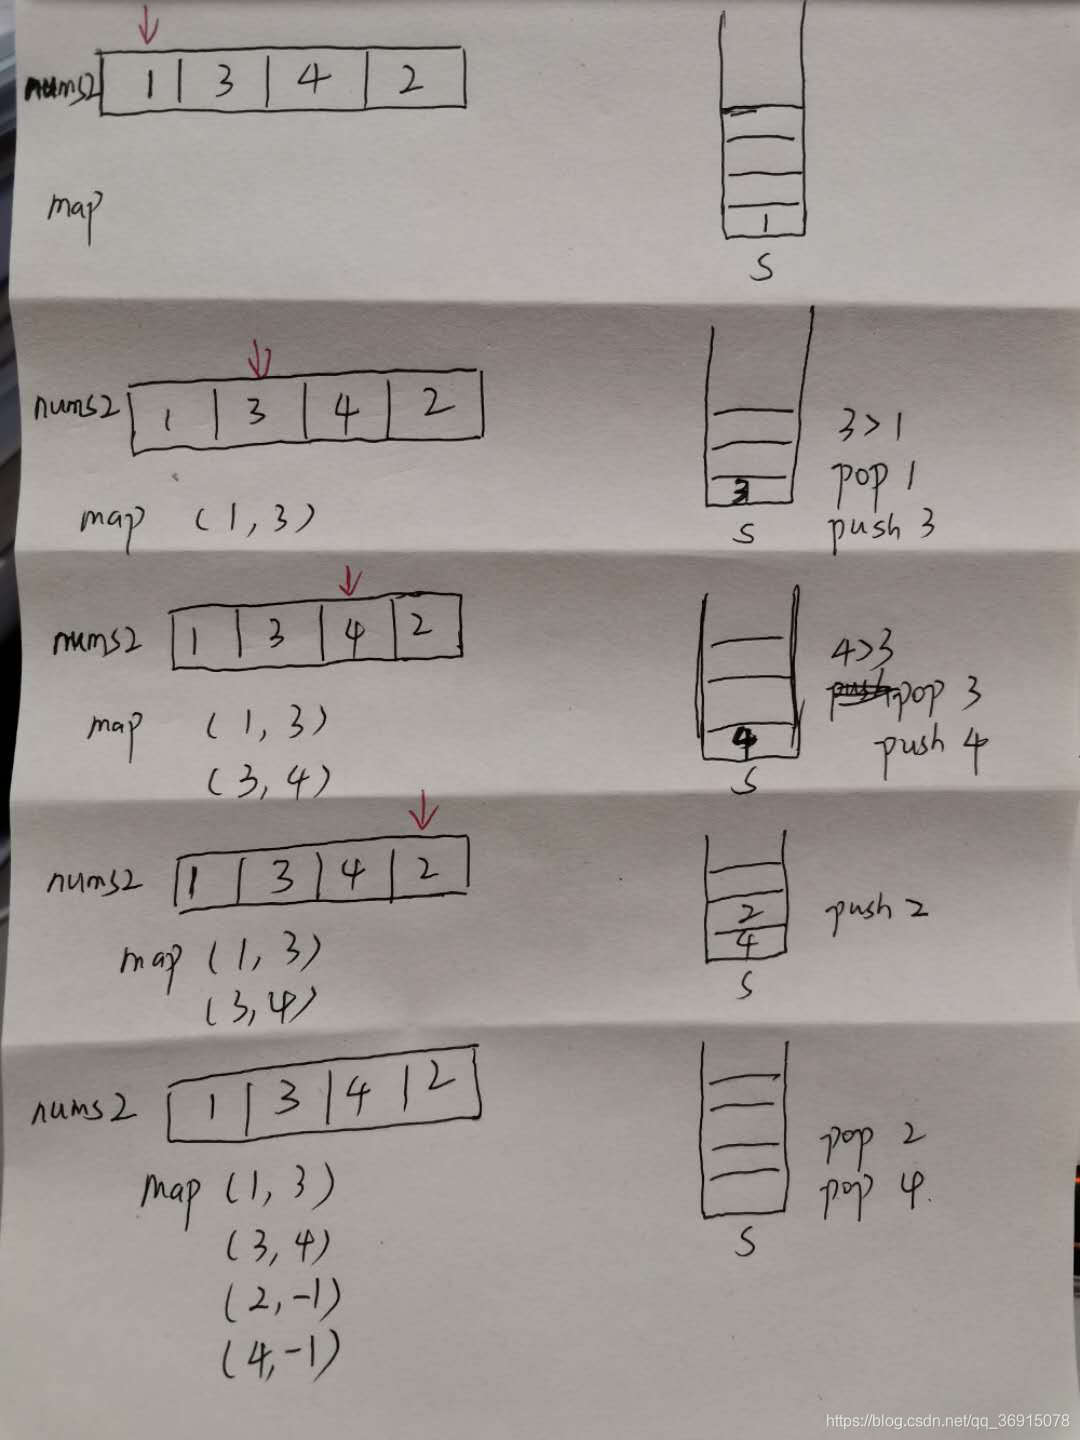 nums2 1 3 4 2
map
1
S
nums2 1 3 4 2
map (1,3)
3
S
3>1
pop 1
push 3
nums2 1 3 4 2
map (1,3)
(3,4)
4
S
4>3
pop 3
push 4
nums2 1 3 4 2
map (1,3)
(3,4)
2
4
S
push 2
nums2 1 3 4 2
map (1,3)
(3,4)
(2,-1)
(4,-1)
S
pop 2
pop 4.
https://blog.csdn.net/qq_36915078